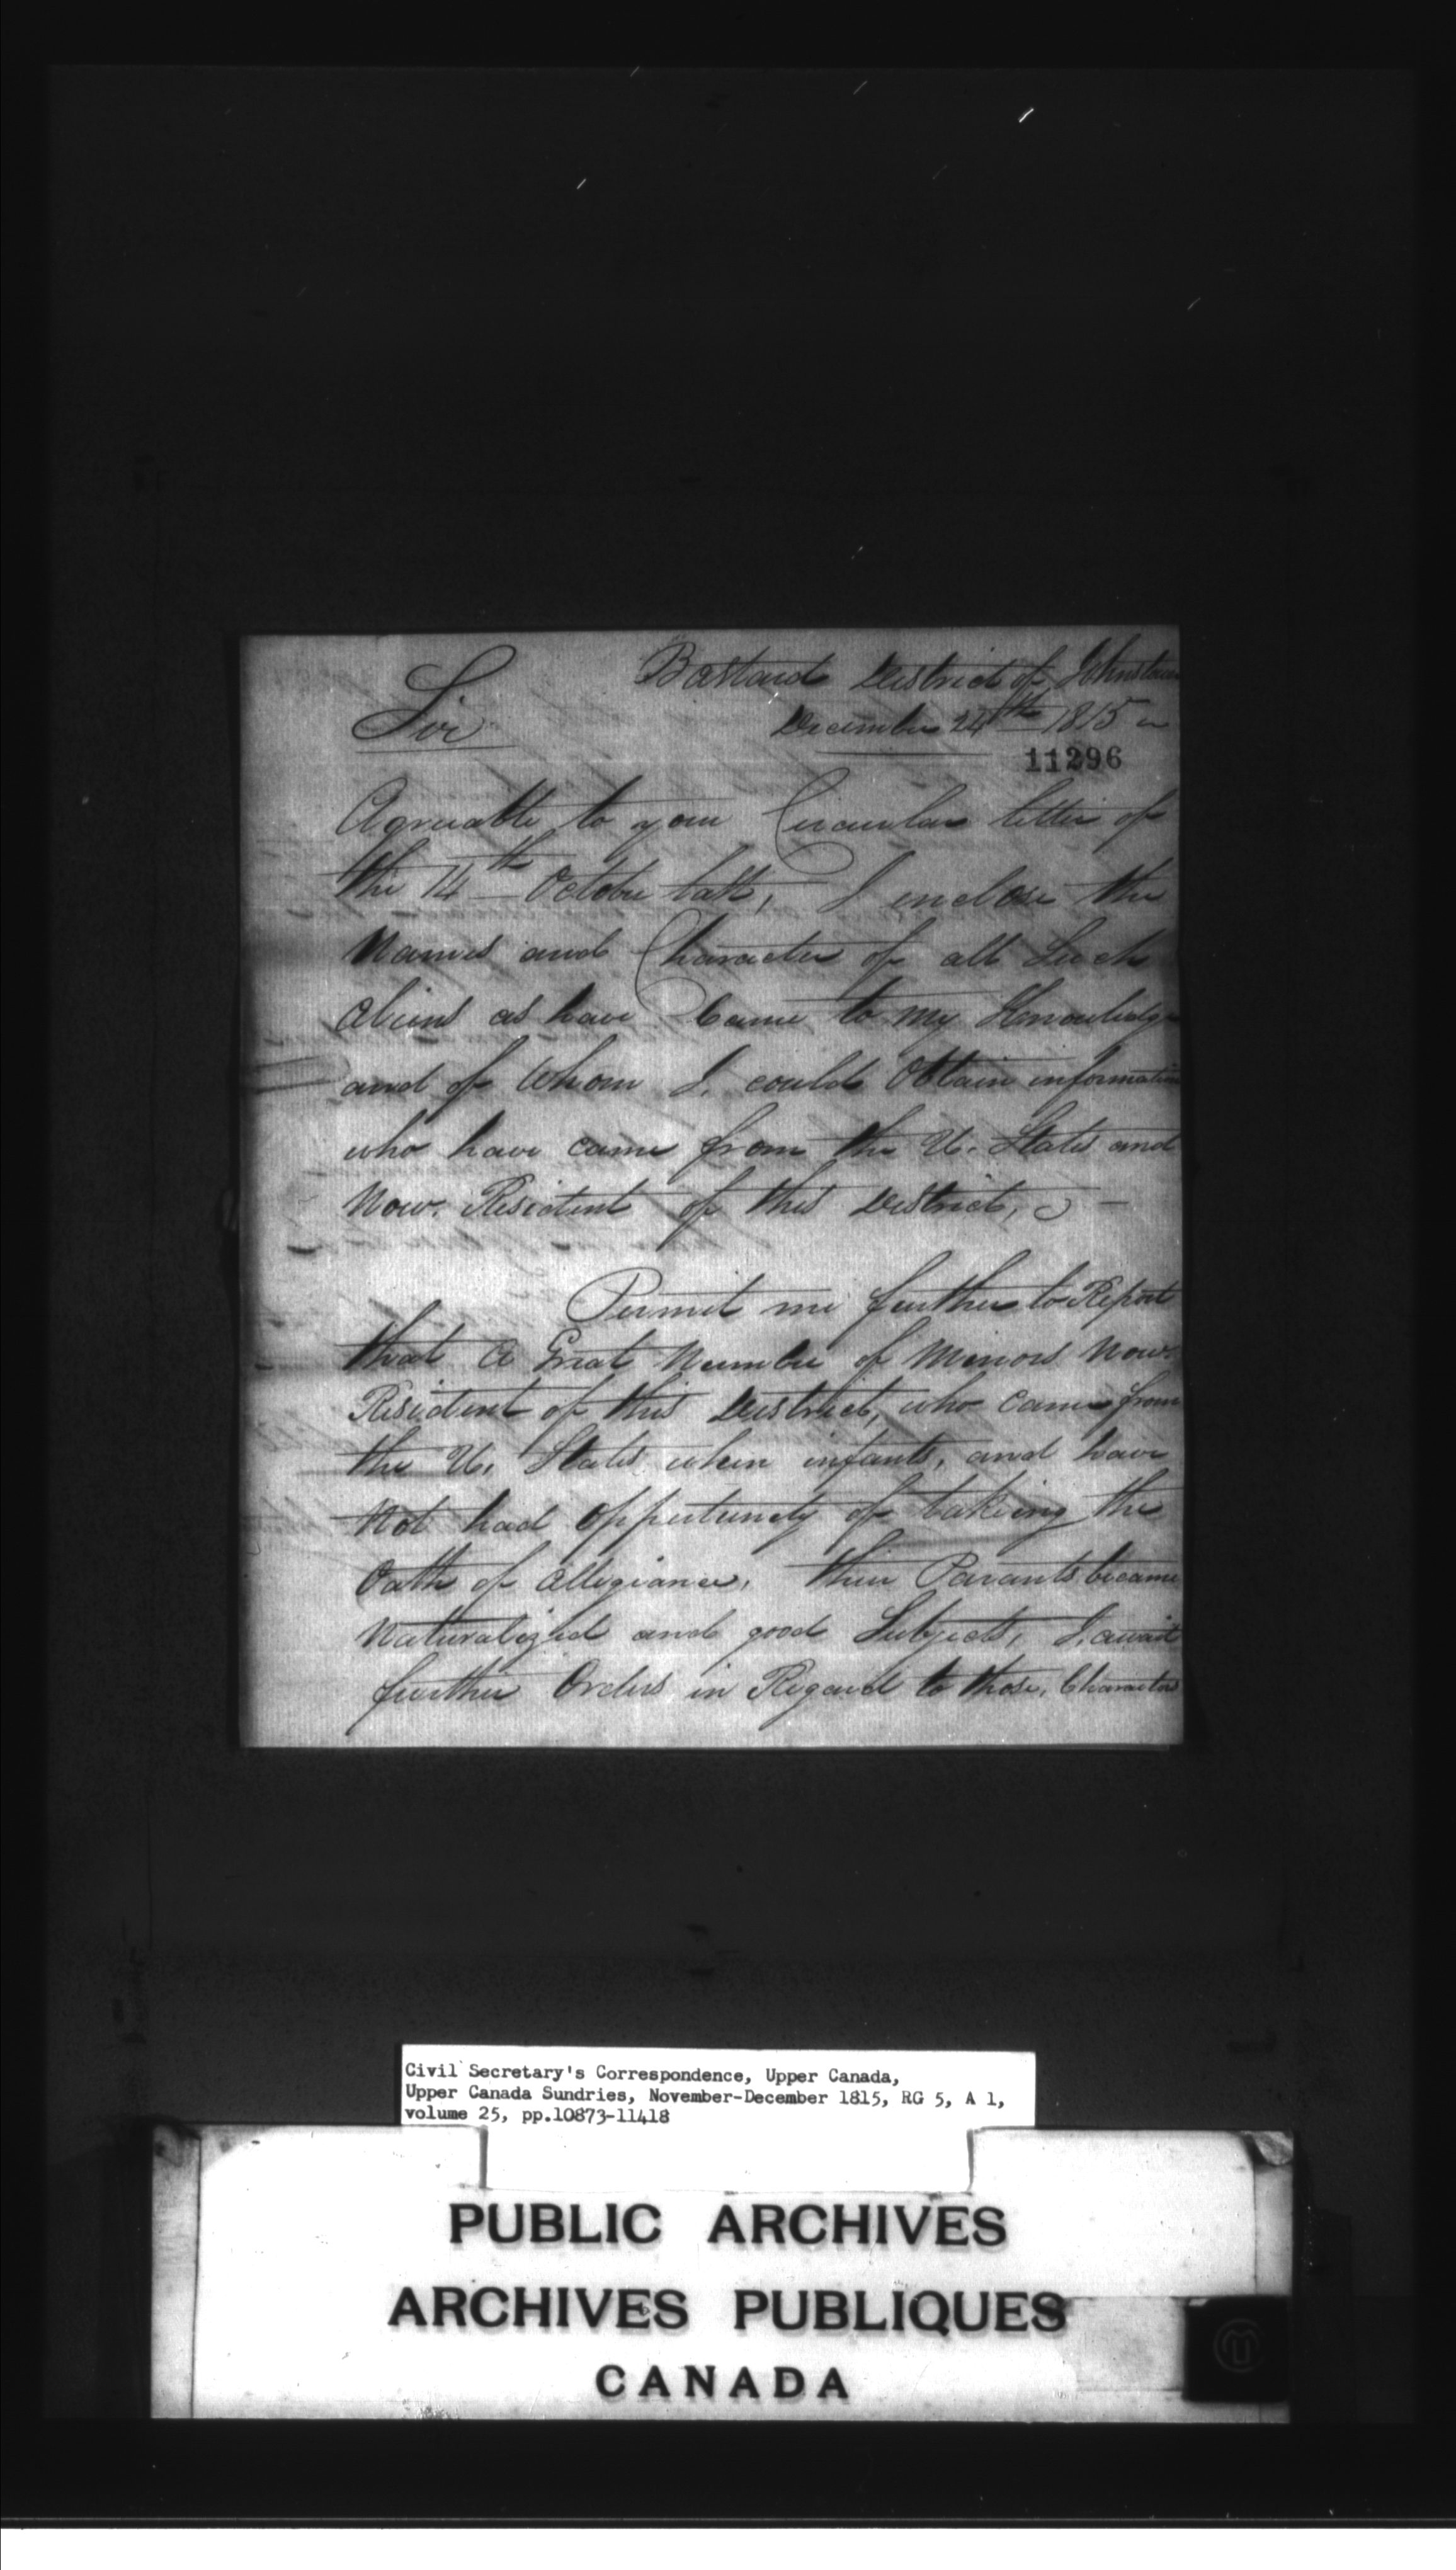 Bastard District of Johnstown
Sir
December 24th 1815
11296
Agreeable to your Circular letter of
the 14th October last, I enclose the
Names and Character of all Such
Aliens as have Came to my Knowledge
and of Whom I could Obtain information
who have came from the U. States and
Now Resident of this District,
Permit me further to Report
that a Great Number of Minors Now
Resident of this District, who came from
the U. States when infants, and have
Not had oppertunety of takeing the
Oath of Allegiance, their Parants became
Naturalized and good Subjects, I await
further Orders in Regard to those Characters
Civil Secretary's Correspondence, Upper Canada,
Upper Canada Sundries, November-December 1815, RG 5, A 1,
volume 25, pp.10873-11418
PUBLIC ARCHIVES
ARCHIVES PUBLIQUES
CANADA